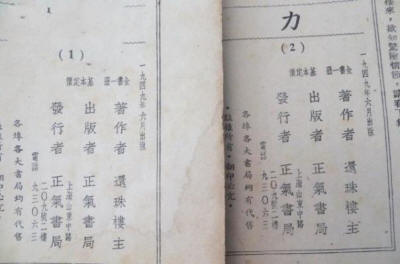 力
(2)
一九四九年六月出版
全書一集 基本定價
著作者 還珠樓主
出版者 正氣書局
發行者 正氣書局
上海山東中路
二〇九號二樓
電話 九三〇六三
各埠各大書局均有代售
版權所有・翻印必究
(1)
一九四九年六月出版
全書一集 基本定價
著作者 還珠樓主
出版者 正氣書局
發行者 正氣書局
上海山東中路
二〇九號二樓
電話 九三〇六三
各埠各大書局均有代售